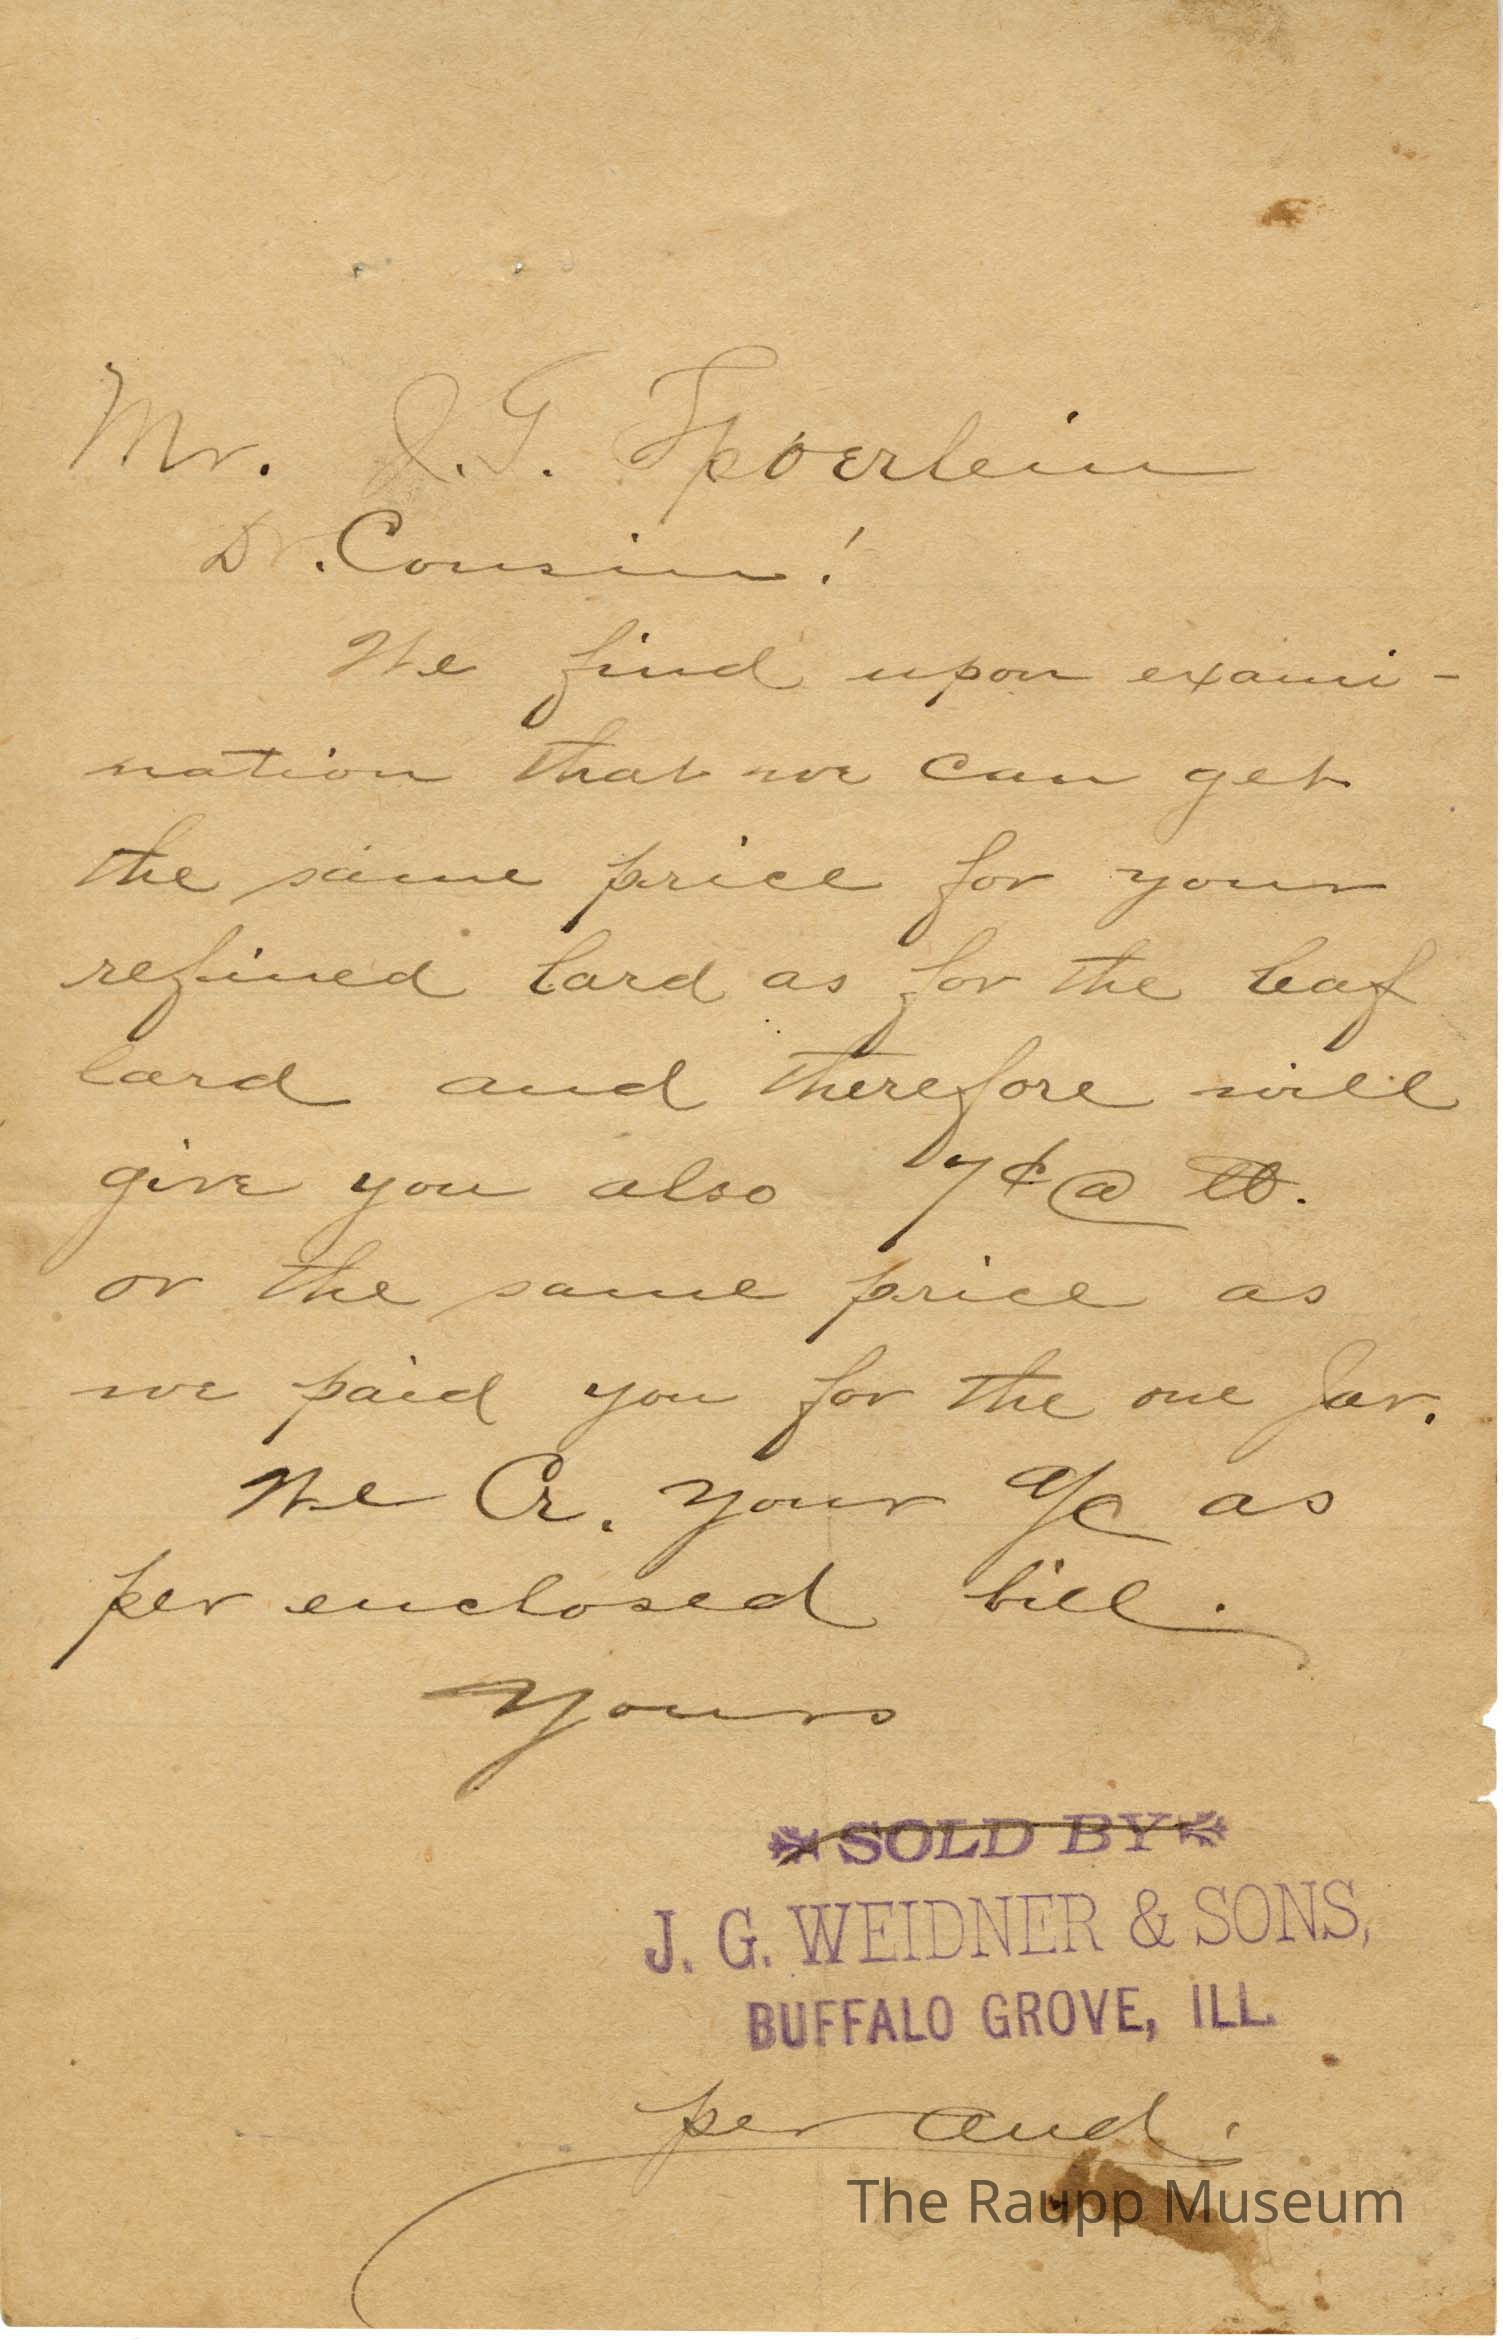 Mr. J. G. Spoerlein
Dr. Cousin!
We find upon exami-
nation that we can get
the same price for your
refined lard as for the leaf
lard and therefore will
give you also 7¢ @ lb.
or the same price as
we paid you for the one Jar.
We Cr. your a/c as
per enclosed bill.
Yours
SOLD BY
J. G. WEIDNER & SONS,
BUFFALO GROVE, ILL.
per and.
The Raupp Museum